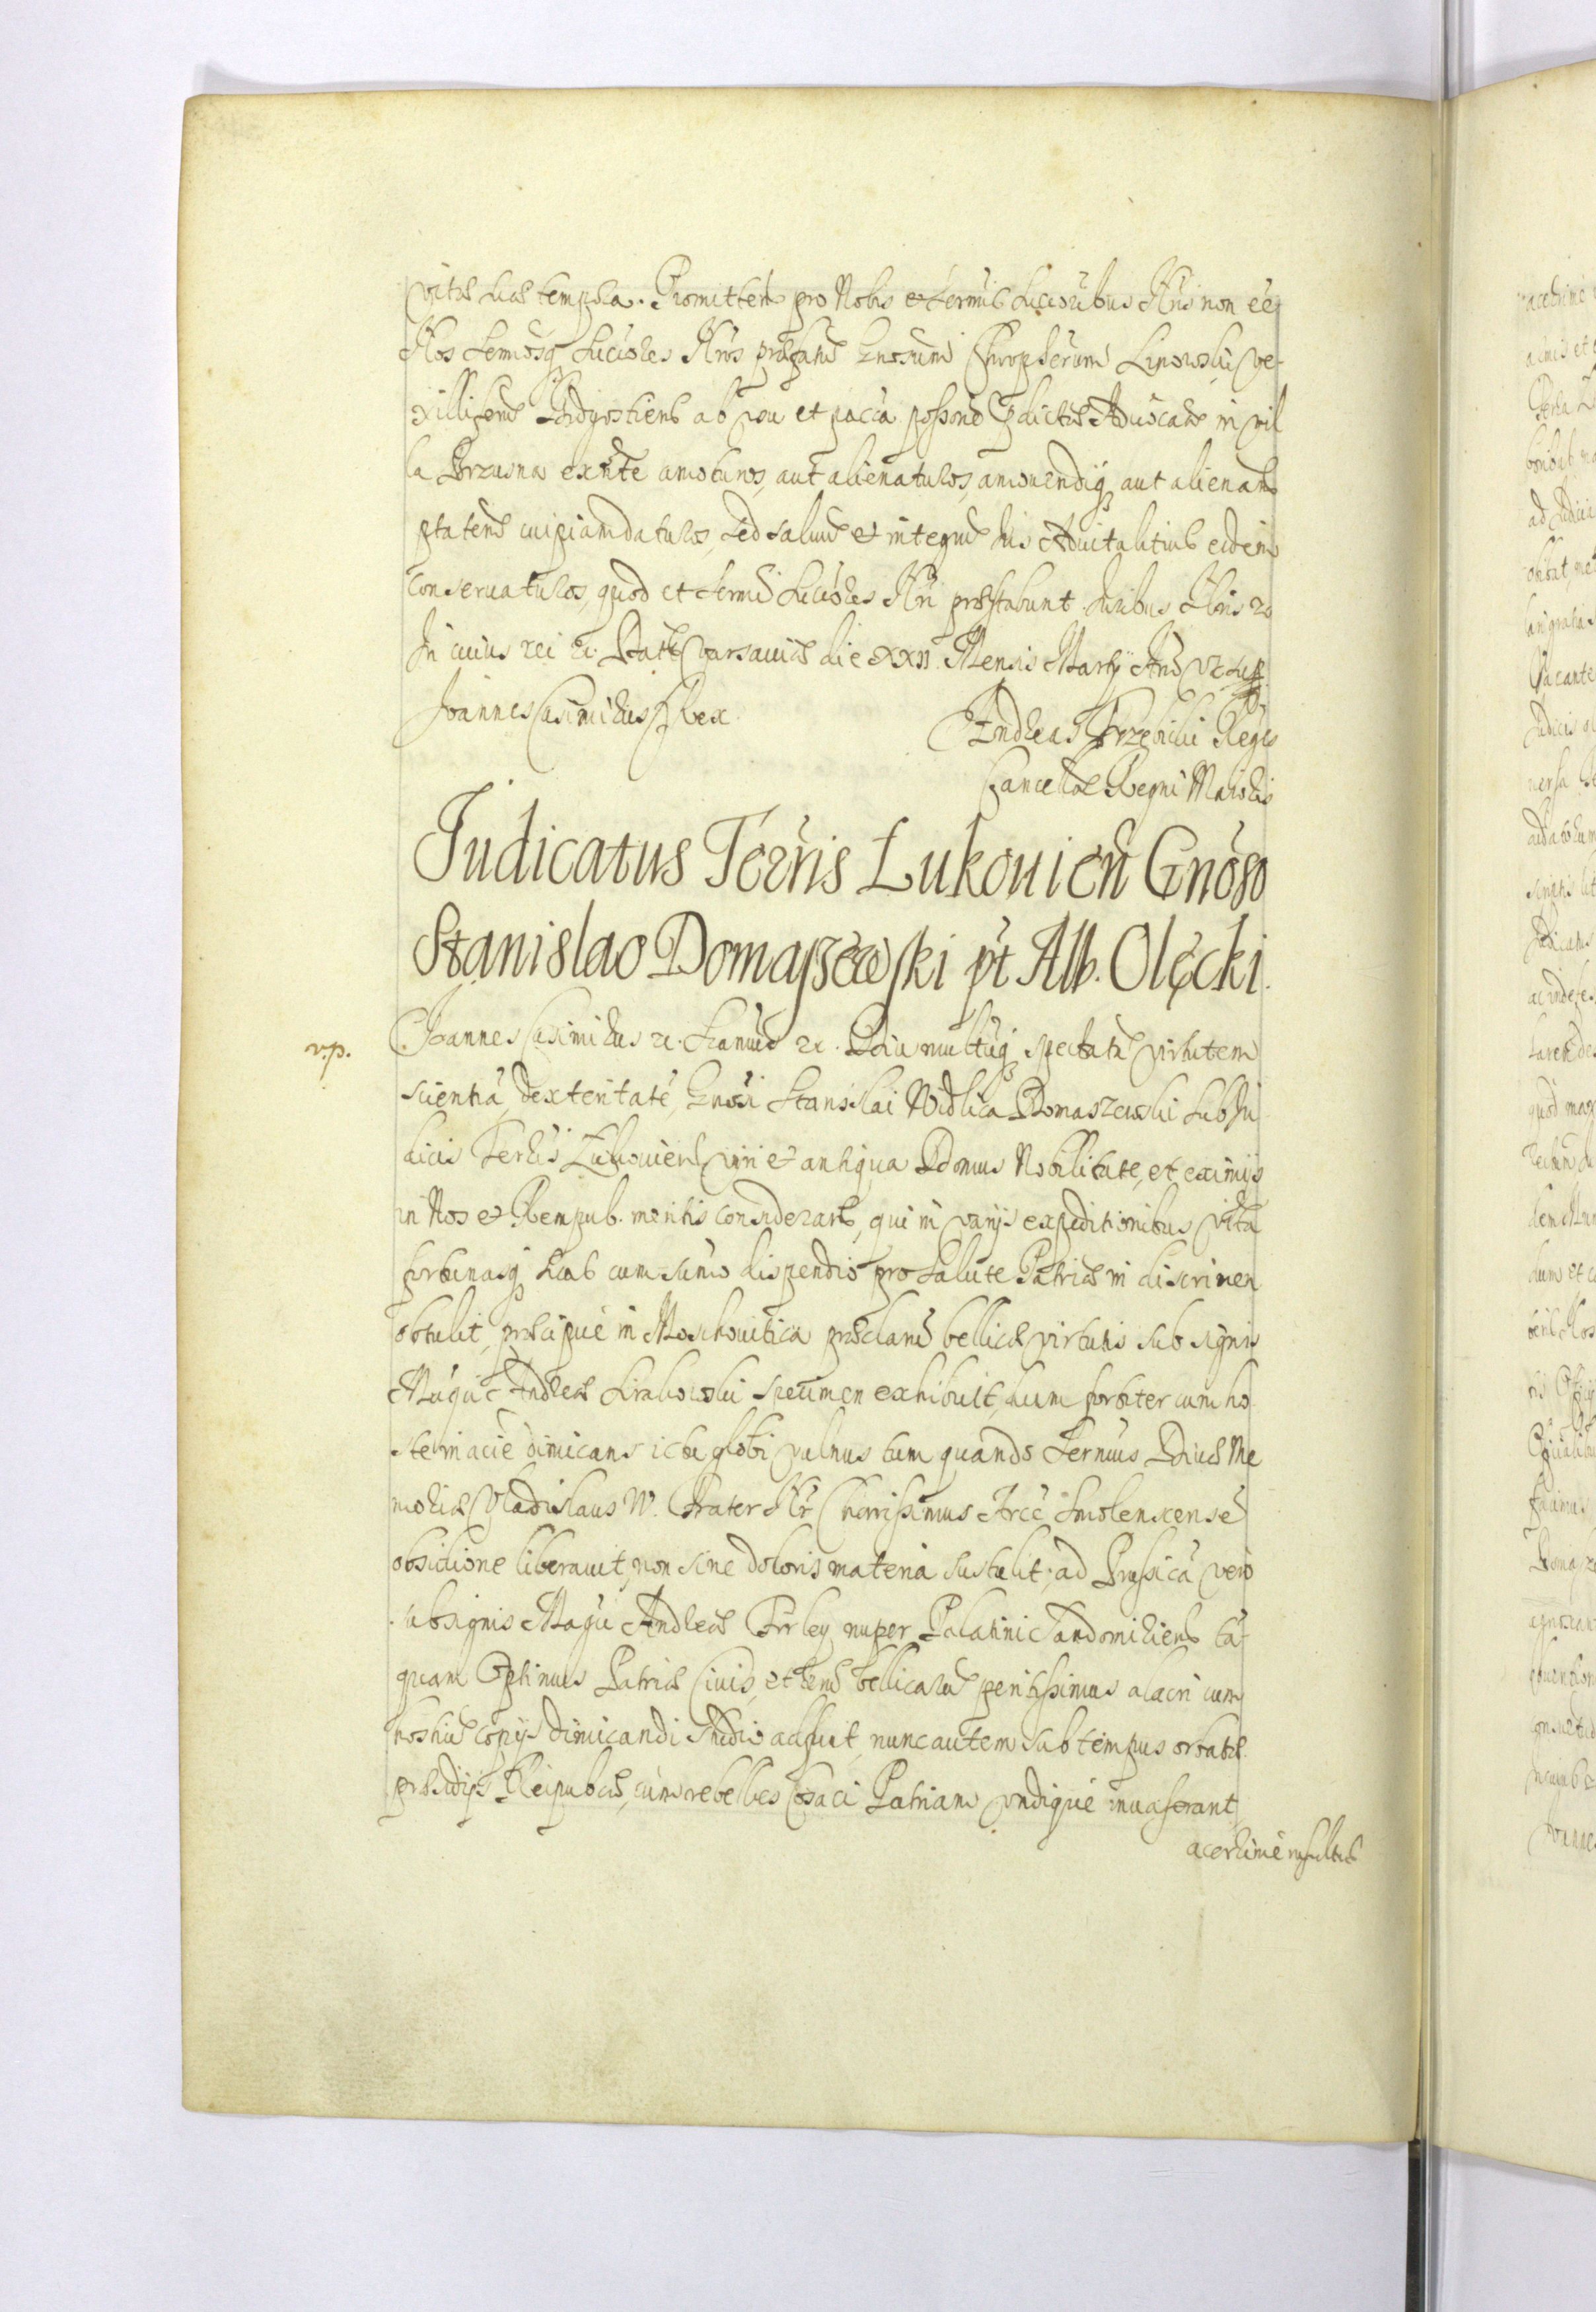 vitæ suæ tempora. Promitten pro Nobis et Sermis Succoribus Nris non ee
Nos Sermosq Succores Nros præfatum Gnosum Christopherum Lipowski Ve-
xilliferum Bidgostien ab usu et paca possone Aduocatiæ in vil
la exnte amoturos, aut alienaturos, amouendiq aut alienandi
ptatem cuipiam daturos, sed saluum et integrum Ius Aduitalitium eidem
conseruaturos, quod et Sermi Succores Nri præstabunt. Iuribus Nris
In cuius rei Dat Varsauiæ die XXII Mensis Martij Ano Vt sup.
Joannes Casimirus Rex.
Andreas Trzebicki Regēs
Cancellæ Regni Maioris
Judicatus Terris Lukouien Gnoso
Stanislao Domaszewski pt Alb. Olęcki.
v.p.
Joannes Casimirus Diu multuq spectatam virtutem
scientiā, dexteritatē, Gnosi Stanislai Nidlica Domaszewski SubJu
dicis Terris Lukouien viri et antiqua Domus Nobilitate, et eximijs
in Nos et Rempub. meritis considerat, qui in varijs expeditionibus vitā
fortunasq suas cum sumo dispendio pro Salute Patriæ in discrimen
obtulit, præcipuè in Moschouitica præclarum bellicæ virtutis sub signis
Magci Andreæ specimen exhibuit, dum fortiter cum ho
ste in acie dimicans ictu globi vulnus tum quando Sermus Diuæ Me
moriæ Vladislaus IV. Frater Nr Charissimus Arcē Smolenscensē
obsidione liberauit, non sine doloris materia sustulit; ad Prussicā vero
sub signis Magci Andreæ Firley nuper Palatini Sandomirien tā
quam Optimus Patriæ Ciuis, et rerum bellicarum peritissimus alacri cum
hostium copijs dimicandi studio adfuit, nunc autem sub tempus orbatæ
præsidijs Reipublicæ, cum rebelles Cosaci Patriam vndiquè inuaserant
acerrimè